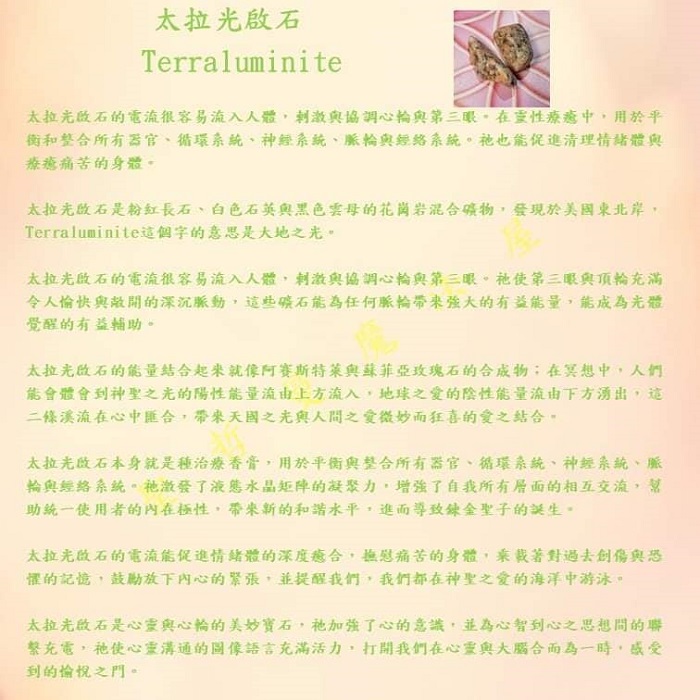 太拉光啟石
Terraluminite
太拉光啟石的電流很容易流入人體，刺激與協調心輪與第三眼。在靈性療癒中，用於平
衡和整合所有器官、循環系統、神經系統、脈輪與經絡系統。祂也能促進清理情緒體與
療癒痛苦的身體。
太拉光啟石是粉紅長石、白色石英與黑色雲母的花崗岩混合礦物，發現於美國東北岸，
Terraluminite這個字的意思是大地之光。
太拉光啟石的電流很容易流入人體，刺激與協調心輪與第三眼。祂使第三眼與頂輪充滿
令人愉快與敞開的深沉脈動，這些礦石能為任何脈輪帶來強大的有益能量，能成為光體
覺醒的有益輔助。
太拉光啟石的能量結合起來就像阿賽斯特萊與蘇菲亞玫瑰石的合成物；在冥想中，人們
能會體會到神聖之光的陽性能量流由上方流入，地球之愛的陰性能量由下方湧出，這
二條溪流在心中匯合，帶來天國之光與人間之愛微妙而狂喜的愛之結合。
太拉光啟石本身就是種治療香膏，用於平衡與整合所有器官、循環系統、神經系統、脈
輪與經絡系統。祂激發了液態水晶矩陣的凝聚力，增強了自我所有層面的相互交流，幫
助統一使用者的內在極性，帶來新的和諧水平，進而導致鍊金聖子的誕生。
太拉光啟石的電流能促進情緒體的深度癒合，撫慰痛苦的身體，乘載著對過去創傷與恐
懼的記憶，鼓勵放下內心的緊張，並提醒我們，我們都在神聖之愛的海洋中游泳。
太拉光啟石是心靈與心輪的美妙寶石，祂加強了心的意識，並為心智到心之思想間的聯
繫充電，祂使心靈溝通的圖像語言充滿活力，打開我們在心靈與大腦合而為一時，感受
到的愉悅之門。